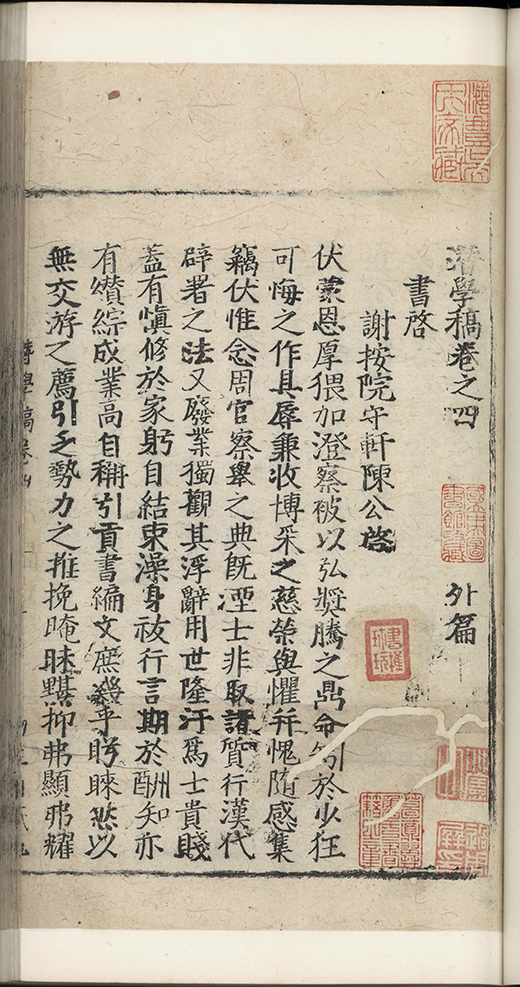 潛學稿卷之四 外篇
書啓
謝按院守軒陳公啓
伏蒙恩厚猥加澄察被以弘奬騰之鼎命匄於少狂
可悔之作具辱兼收博采之慈榮與懼并愧隨感集
竊伏惟念周官察舉之典旣湮士非取諸質行漢代
辟署之法又廢業獨觀其浮辭用世隆汙爲士貴賤
蓋有愼修於家躬自結束澡身祓行言期於酬知亦
有纘綜成業高自稱引貢書編文庶幾乎眄睞悠以
無交游之薦引乏勢力之推挽唵昧黮抑弗顯弗耀